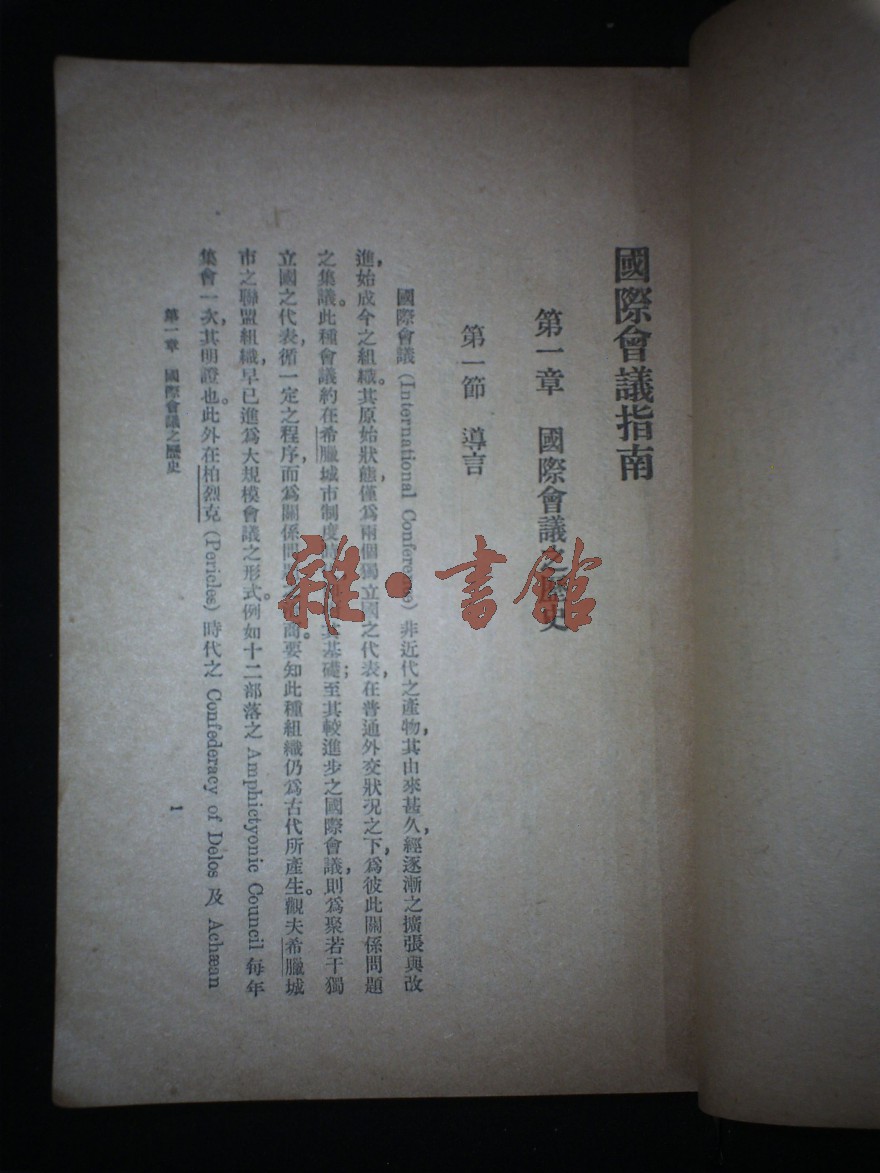 國際會議指南
第一章 國際會議之歷史
第一節 導言
國際會議 (International Conference) 非近代之產物，其由來甚久，經逐漸之擴張與改
進，始成今之組織。其原始狀態，僅爲兩個獨立國之代表，在普通外交狀況之下，爲彼此關係問題
之集議。此種會議約在希臘城市制度 其基礎；至其較進步之國際會議，則爲聚若干獨
立國之代表，循一定之程序，而爲關係問題 商。要知此種組織仍爲古代所產生。觀夫希臘城
市之聯盟組織，早已進爲大規模會議之形式。例如十二部落之 Amphictyonic Council 每年
集會一次，其明證也。此外在柏烈克 (Pericles) 時代之 Confederacy of Delos 及 Achæan
第一章 國際會議之歷史
1
雜·書館